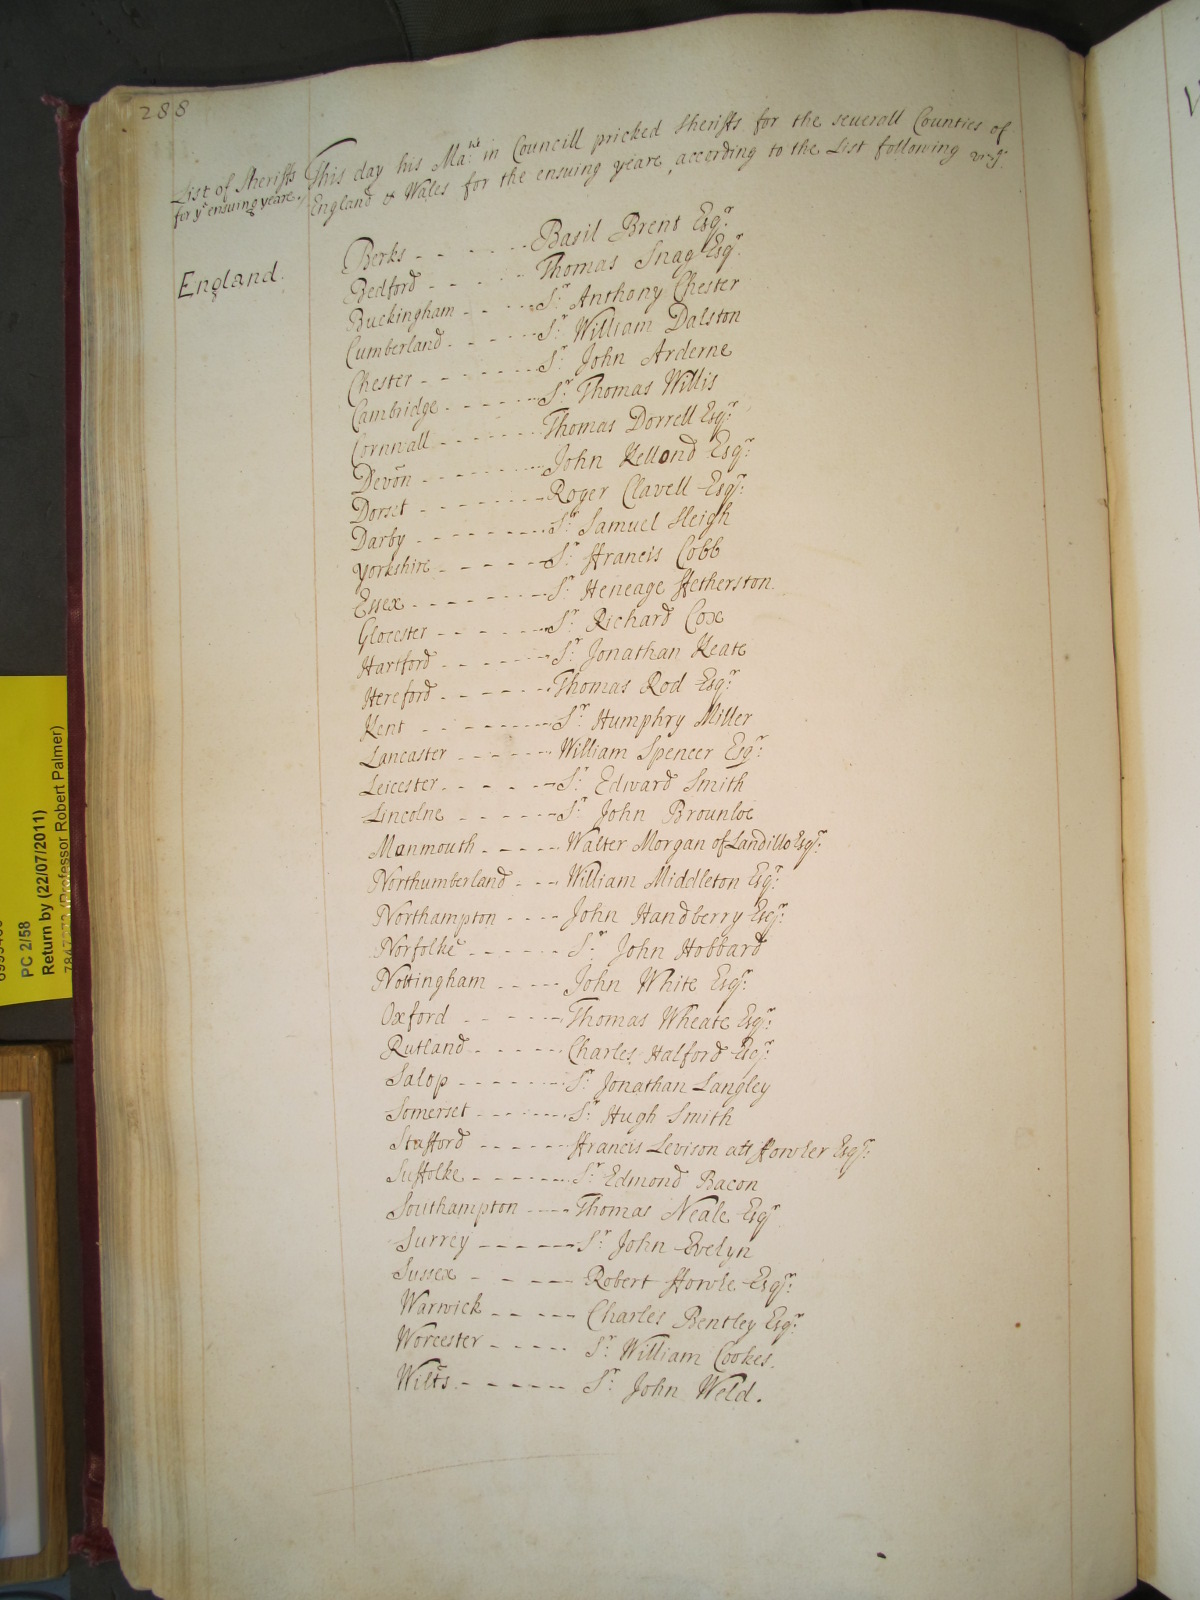 288
List of Sheriffs
for yᵉ ensuing yeare./
This day his Maᵗⁱᵉ in Councill pricked Sheriffs for the seuerall Counties of
England & Wales for the ensuing yeare, according to the List following vizᵗ:
England.
Berks - - - - - Basil Brent Esqʳ:
Bedford - - - - - Thomas Snag Esqʳ:
Buckingham - - - - Sʳ: Anthony Chester
Cumberland - - - - Sʳ: William Dalston
Chester - - - - - - Sʳ: John Arderne
Cambridge - - - - - Sʳ: Thomas Willis
Cornwall - - - - - - Thomas Dorrell Esqʳ:
Devon - - - - - - - John Kellond Esqʳ:
Dorset - - - - - - - Roger Clavell Esqʳ:
Darby - - - - - - - Sʳ: Samuel Sleigh
Yorkshire - - - - - Sʳ: ffrancis Cobb
Essex - - - - - - - Sʳ: Heneage ffetherston.
Glocester - - - - - Sʳ: Richard Cox
Hartford - - - - - - Sʳ: Jonathan Keate
Hereford - - - - - - Thomas Rod Esqʳ:
Kent - - - - - - - Sʳ: Humphry Miller
Lancaster - - - - - William Spencer Esqʳ:
Leicester - - - - - Sʳ: Edward Smith
Lincolne - - - - - - Sʳ: John Brounloe
Monmouth - - - - - Walter Morgan of Landillo Esqʳ:
Northumberland - - - William Middleton Esqʳ:
Northampton - - - - John Handberry Esqʳ:
Norfolke - - - - - - Sʳ: John Hobbard
Nottingham - - - - - John White Esqʳ:
Oxford - - - - - Thomas Wheate Esqʳ:
Rutland - - - - - Charles Halford Esqʳ:
Salop - - - - - - - Sʳ: Jonathan Langley
Somerset - - - - - - Sʳ: Hugh Smith
Stafford - - - - - - ffrancis Levison als ffowler Esqʳ:
Suffolke - - - - - - Sʳ: Edmond Bacon
Southampton - - - - Thomas Neale Esqʳ
Surrey - - - - - - Sʳ: John Evelyn
Sussex - - - - - Robert ffowle Esqʳ:
Warwick - - - - - Charles Bentley Esqʳ:
Worcester - - - - - Sʳ: William Cookes.
Wilts. - - - - - - Sʳ: John Weld.
PC 2/58
Return by (22/07/2011)
(Professor Robert Palmer)